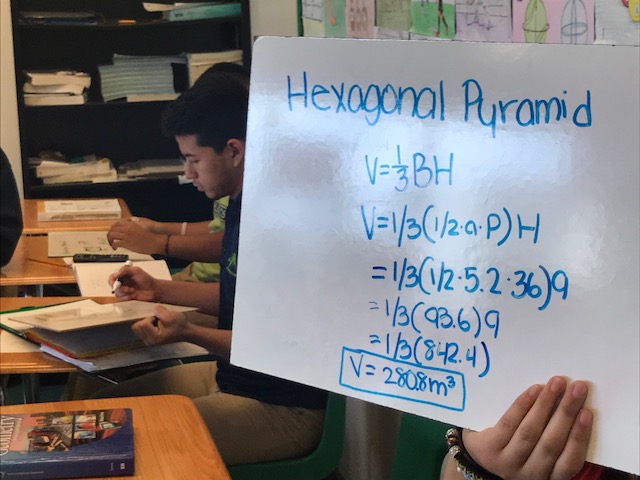 Hexagonal Pyramid
V=1/3BH
V=1/3(1/2·a·P)H
=1/3(1/2·5.2·36)9
=1/3(93.6)9
=1/3(842.4)
V=280.8m³
Geometry